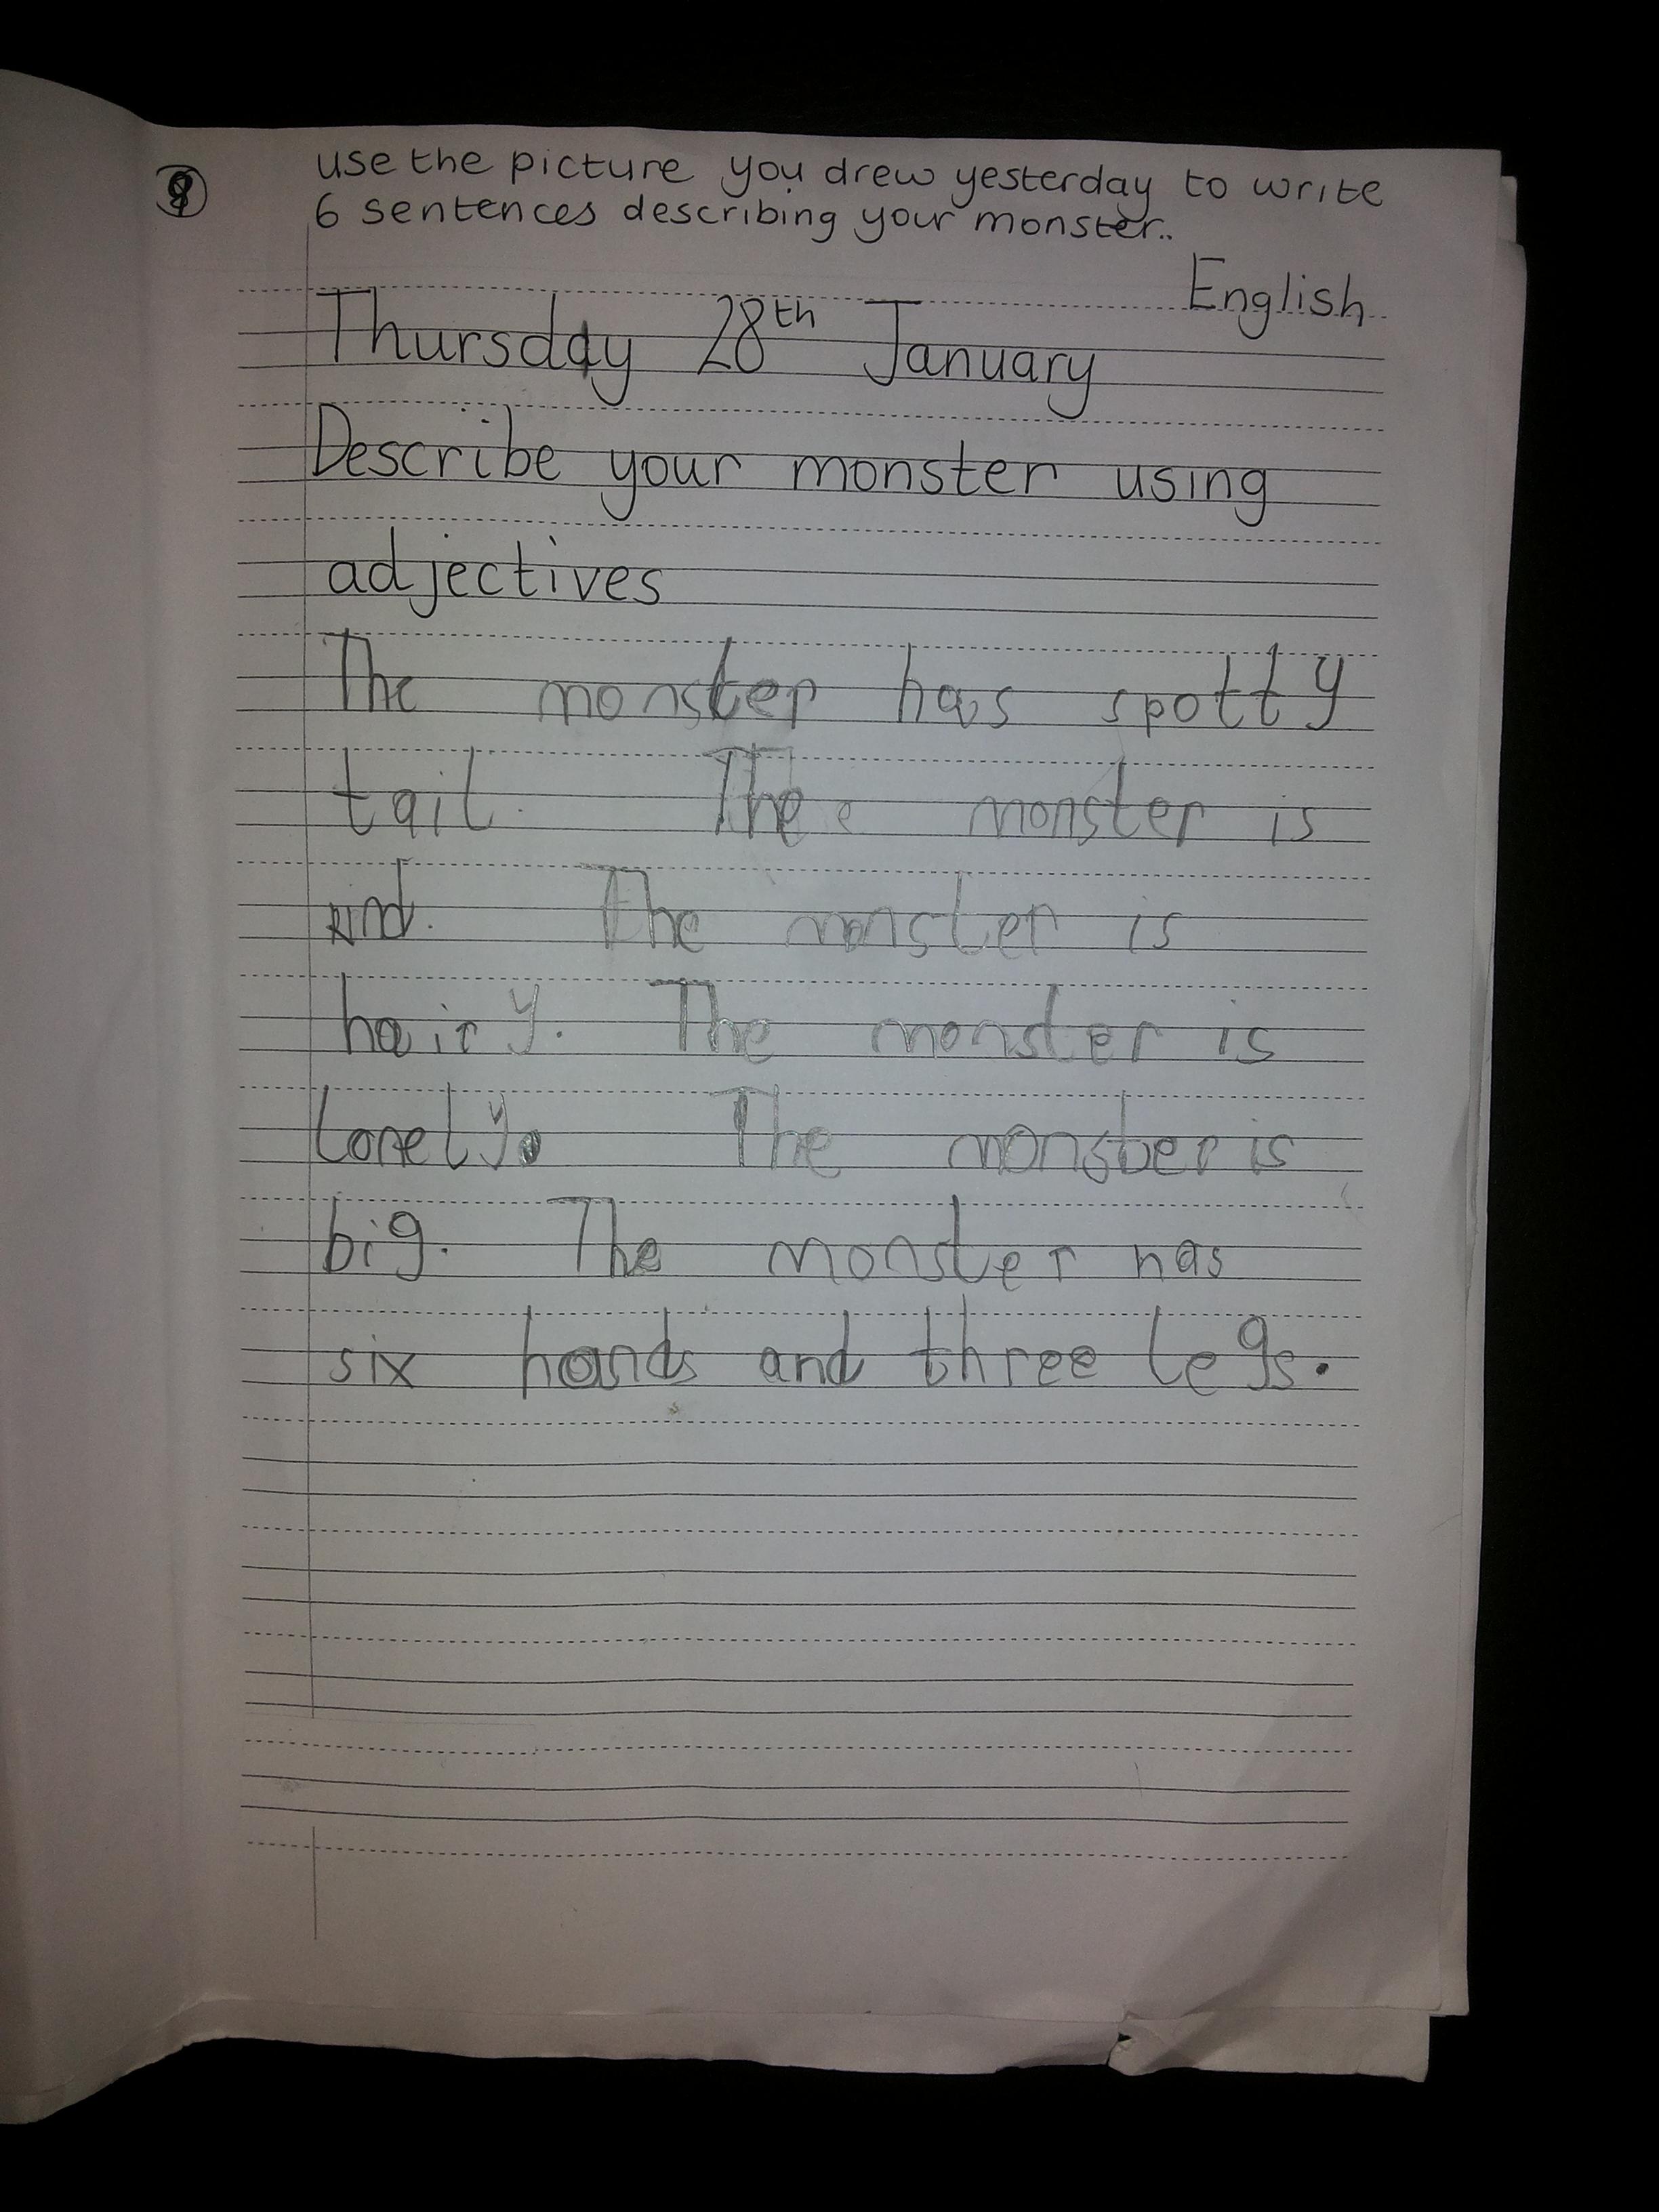 use the picture you drew yesterday to write
6 sentences describing your monster..
English
Thursday 28th January
Describe your monster using
adjectives
The monster has spotty
tail. The e monster is
kind. The monster is
hairy. The monster is
lonely. The monster is
big. The monster has
six hands and three legs.